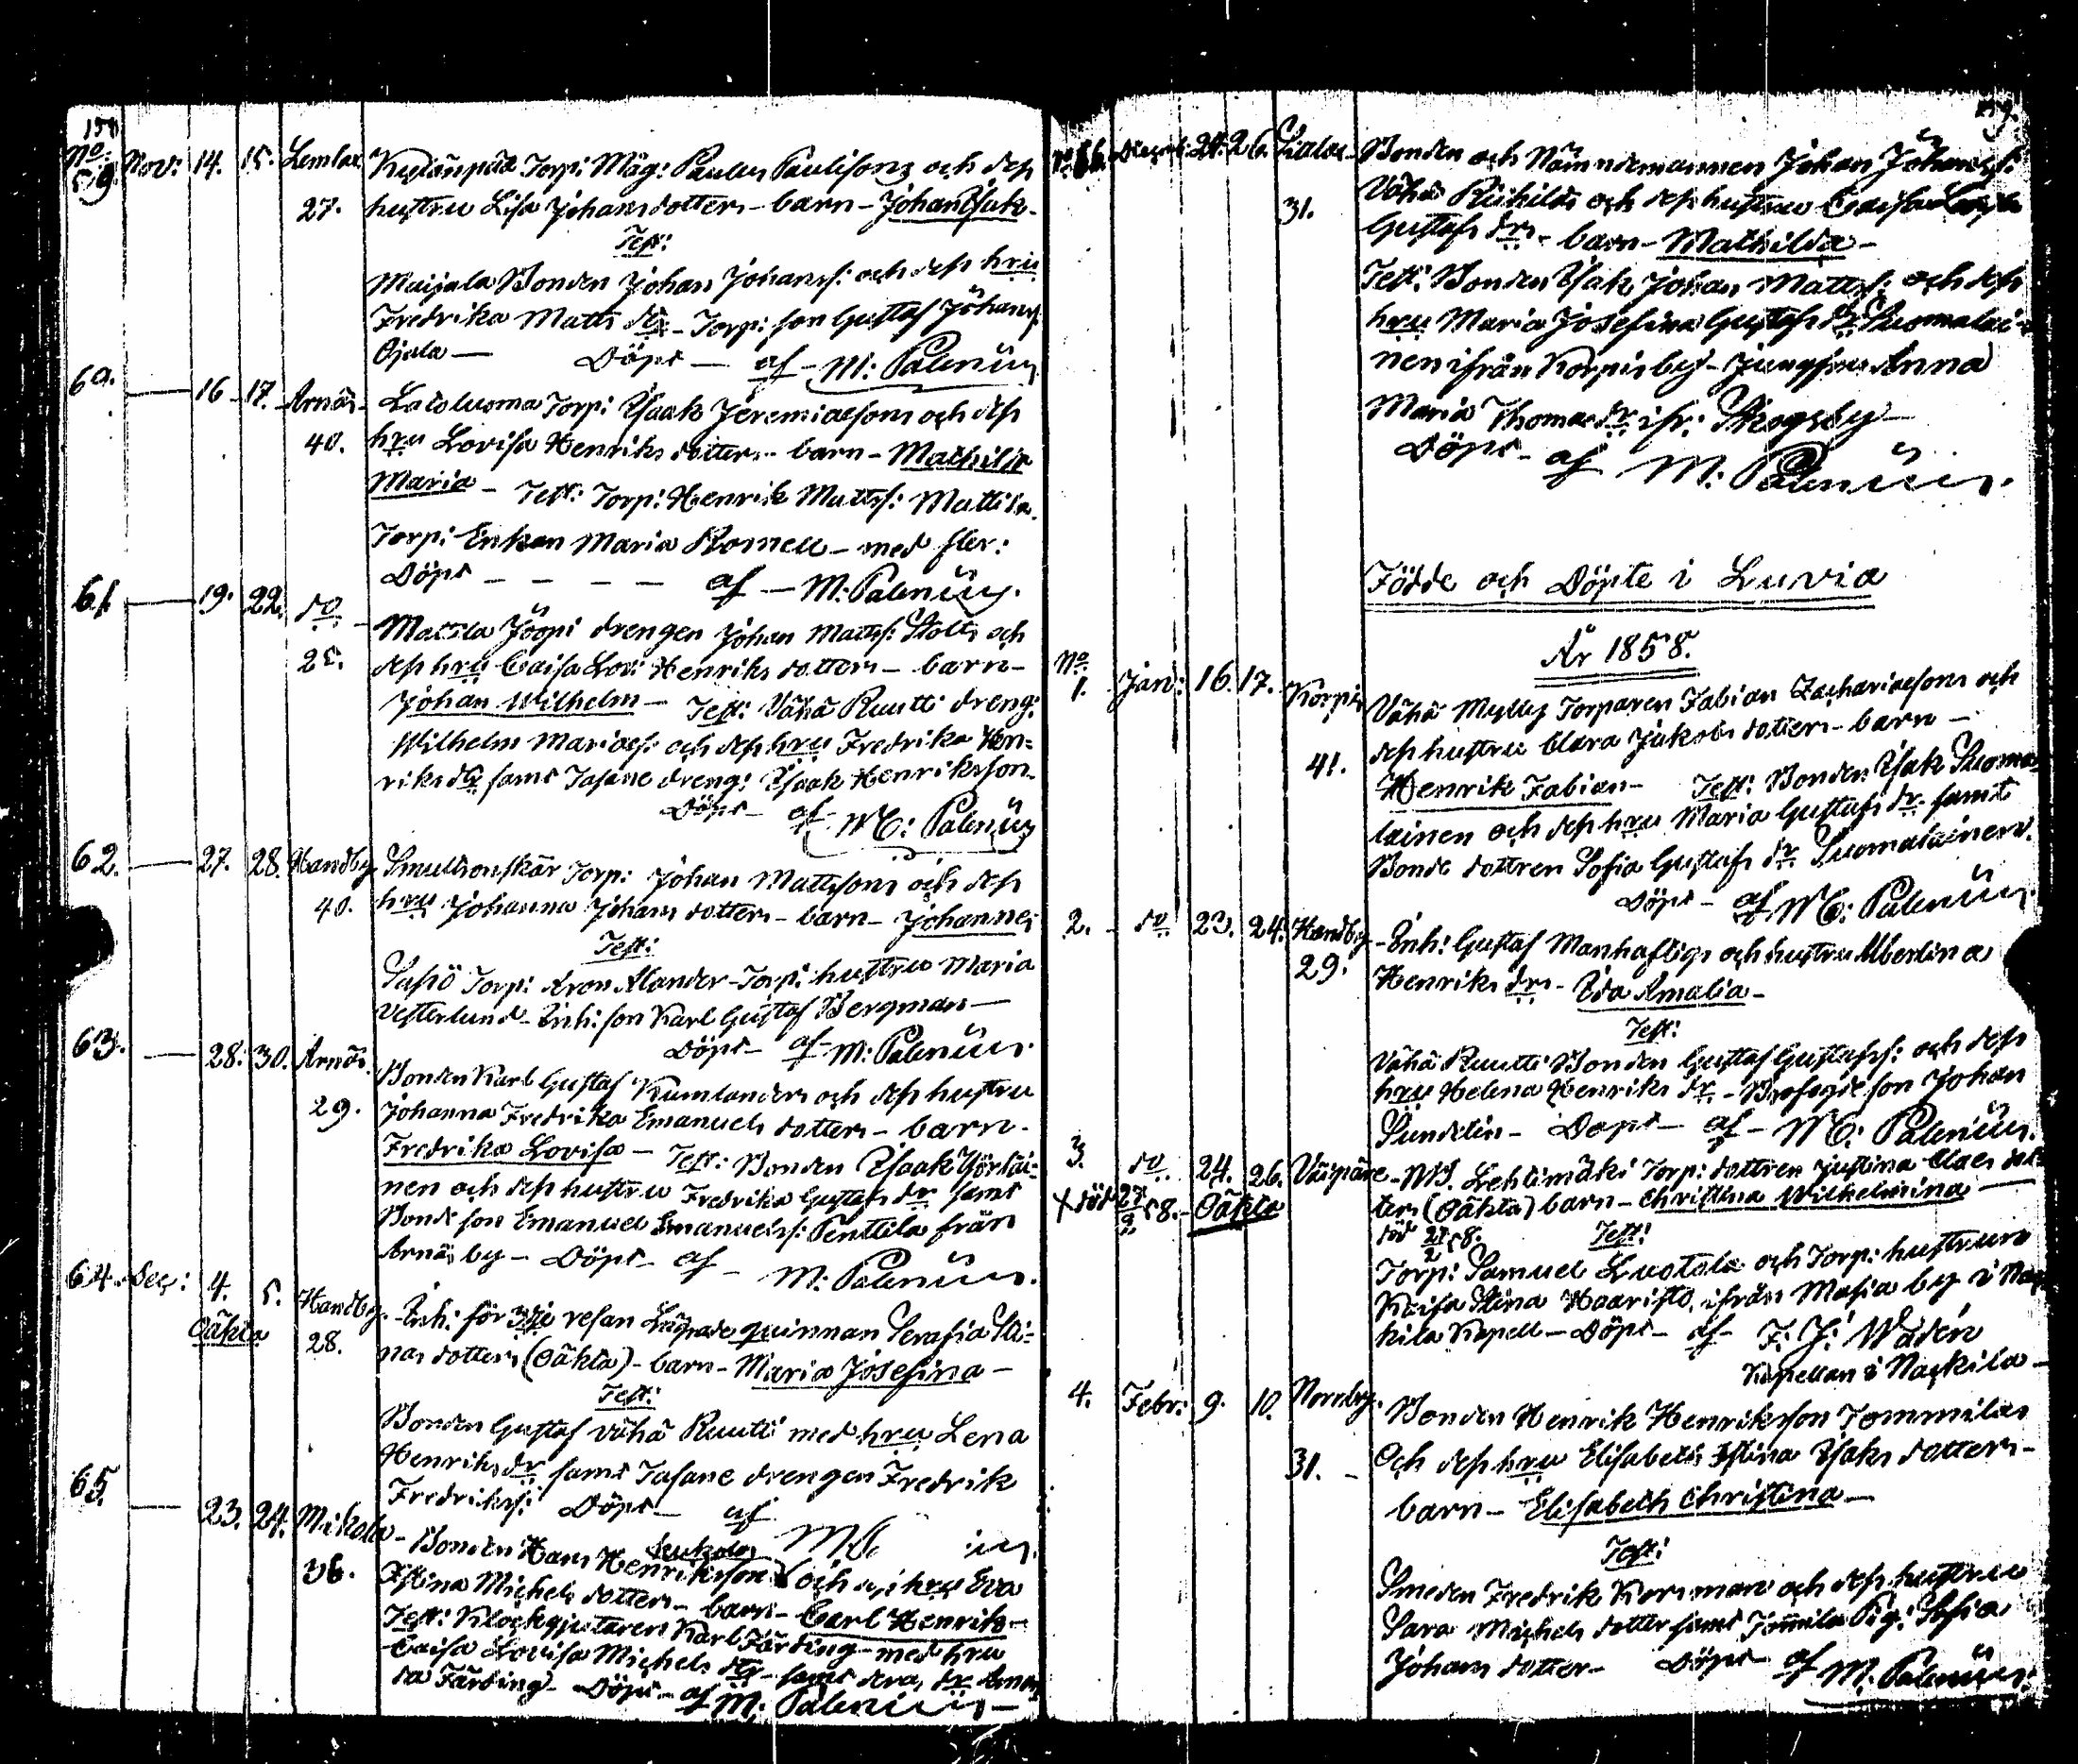 158
No 59. Nov: 14. 15. Lemlax. Torp: Måg: Paulus Paulisons och dess
27. hustru Lisa Johansdotters - barn - Johan Isak -
Test:
Maijala Bonden Johan Johanss: och dess hru
Fredrika Matts dr - Torp: son Gustaf Johanss.
Ojala — Döpt — af - M: Palenius
60. — 16 - 17. Arnäs - Torp: Isaak Jeremiaesons och dess
40. hru Lovisa Henriks dotters - barn - Mathilda
Maria - Test: Torp: Henrik Mattss: Mattila.
Torp: Enkan Maria - med fler:
Döpt - - - - af — M: Palenius.
61. — 19. 22. do - Mattila drengen Johan Mattss: Stolts och
25. dess hru Caisa Lov: Henriks dotters - barn -
Johan Wilhelm - Test: Vähä Ruutti dreng:
Wilhelm Mariaes: och dess hru Fredrika Hen=
riks dtr samt Tasane dreng: Isaak Henriksson.
Döpt - af M: Palenius
62. — 27. 28. Handby. Smultronskär Torp: Johan Mattsons och dess
40. hru Johanna Johans dotters - barn - Johannes
Test:
Torp: Aron Alander - Torp: hustru Maria
Vesterlund - Inh: son Karl Gustaf Bergman —
Döpt - af M: Palenius.
63. — 28. 30. Arnäs. Bonden Karl Gustaf Kumlanders och dess hustru
29. Johanna Fredrika Emanuels dotters - barn -
Fredrika Lovisa - Test: Bonden Isaak
nen och dess hustru Fredrika Gustafs dr samt
Bonde son Emanuel Emanuelss: Penttila från
Arnäs by - Döpt - af - M: Palenius.
64. Dec: 4. 5. Handby. Inh: för 3dje resan Lägrade quinnan Serafia Sti=
Oäkta 28. nas dotters (Oäkta) - barn - Maria Josefina -
Test:
Bonden Gustaf Vähä Ruutti med hru Lena
Henriks dr samt Tasane drengen Fredrik
Fredrikss: Döpt - af
65. — 23. 24. Mikola - Bonden Hans Henriksson och dess hru Eva
36. Stina Michels dotters - barn - Carl Henrik -
Test: Klockgjutaren Karl Färding - med hru
Caisa Lovisa Michels dtr - samt dera, dr
da Färding - Döpt - af M: Palenius -
No 66. Decemb: 24. 26. Bonden och Nämndemannen Johan Johanss:
31. Vähä och dess hustru Caisa
Gustafs drs - barn - Mathilda -
Test: Bonden Isak Johan Mattss: och dess
hru Maria Josefina Gustafs dr Suomalai=
nen ifrån Korpis by - Jungfrun Anna
Maria Thomas dr ifr: Skogsby -
Döpt - af M: Palenius.
Födde och Döpte i Luvia
År 1858.
No
1. Jan: 16. 17. Korpis Vähä Mylly Torparen Fabian Zachariaesons och
dess hustru Clara Jakobs dotters - barn -
41. Henrik Fabian - Test: Bonden Isak Suoma=
lainen och dess hru Maria Gustafs dr samt
Bonde dottren Sofia Gustafs dr Suomalainen.
Döpt - af M: Palenius
2. - do 23. 24. Handby - Inh: Gustaf Manhaftigs och hustru Albertina
29. Henriks drs - Ida Amalia -
Test:
Vähä Ruutti Bonden Gustaf Gustafss: och dess
hru Helena Henriks dr - son Johan
Sundelin - Döpt - af - M: Palenius.
3. do 24. 26. - Lehtimäki Torp: dottren Justina Claes dot=
+ död 27/2 58. - Oäkta ters (Oäkta) barn - Christina Wilhelmina —
död 27/2 58. Test:
Torp: Samuel Luotola och Torp: hustrun
Kaisa Stina Haaristo, ifrån Masia by i
kila Kapell - Döpt - af - F: J: Wadén
Kapellan i Nackila -
4. Febr: 9. 10. Norrby. Bonden Henrik Henriksson Tommilas
31. - Och dess hru Elisabeth Stina Isaks dotters -
barn - Elisabeth Christina -
Test:
Smeden Fredrik Korsman och dess hustru
Sara Michels dotter samt Tommila Pig: Sofia
Johans dotter - Döpt af M: Palenius: